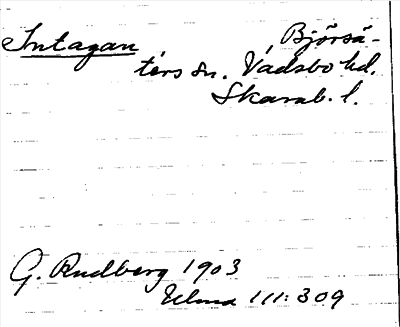 Intagan Björsä-
ters sn. Vadsbo hd.
Skarab. l.
G. Rudberg 1903
Ulma 111:309